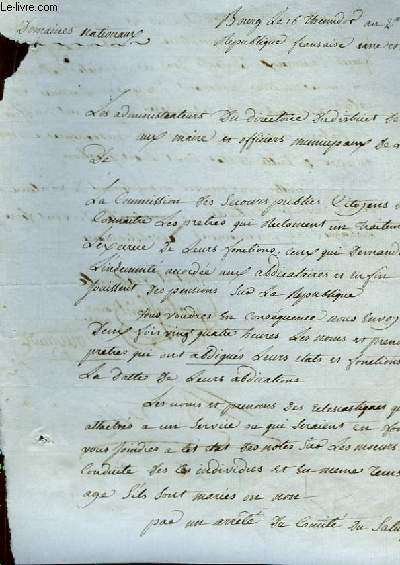 Domaines Nationaux
Bourg le 16 Thermidor an 2e
République francaise une et
Les administrateurs Du directoire Du district de
aux maire et officiers municipaux de
De
La Commission des Secours publics Citoyens
Connaitre Les pretres qui Reclament un Traitem
L'exercice De Leurs fonctions, ceux qui demand
L'indemnité accordée aux abdicataires et en fin
jouissent Des pensions Sur La République
Vous voudrez En Consequence nous Envoy
Deux fois vingt quatre heures Les noms et pren
pretres qui ont abdiqués Leurs etats et fonctions
La datte De Leurs abdications
Les noms et prenoms Des Eclesiastiques q
attachés a un Service ou qui Seraient en
vous joindrez a Des notes Sur Les moeurs
Conduite des individus et En meme Tems
age S'ils Sont mariés ou non
par un arrêté du Comité du Salu